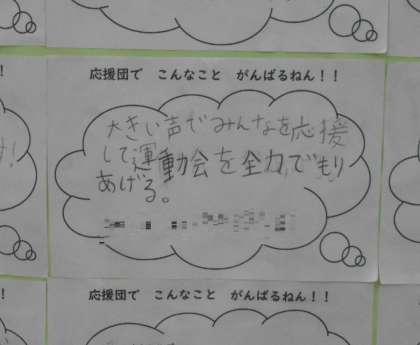 応援団で こんなこと がんばるねん！！
大きい声でみんなを応援
して運動会を全力でもり
あげる。
応援団で こんなこと がんばるねん！！